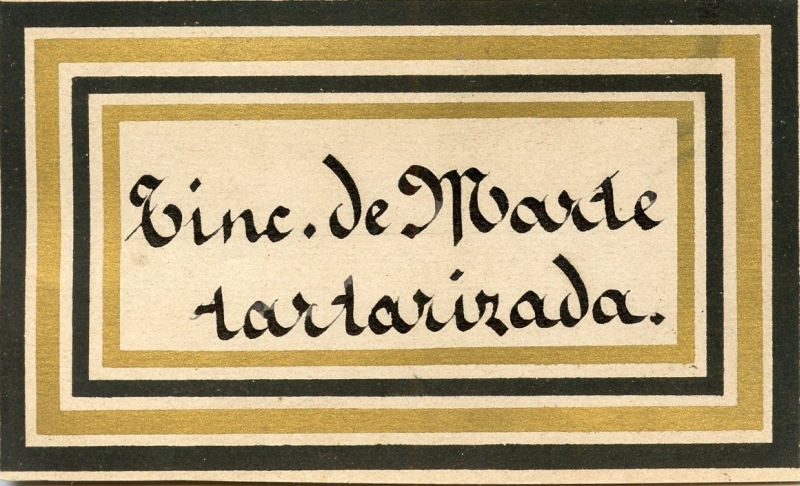 Tinc. de Marte
tartarizada.